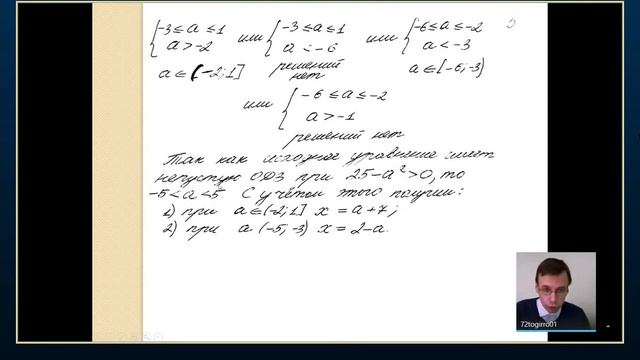 -3≤a≤1 или -3≤a≤1 или -6≤a≤-2
a>-2 a<-6 a<-3
a∈(-2;1] решений нет a∈[-6;-3)
или -6≤a≤-2
a>-1
решений нет
Так как исходное уравнение имеет
непустую ОДЗ при 25-a²>0, то
-5<a<5. С учётом этого получим:
1) при a∈(-2;1] x=a+7;
2) при a (-5;-3) x=2-a.
72togirro01